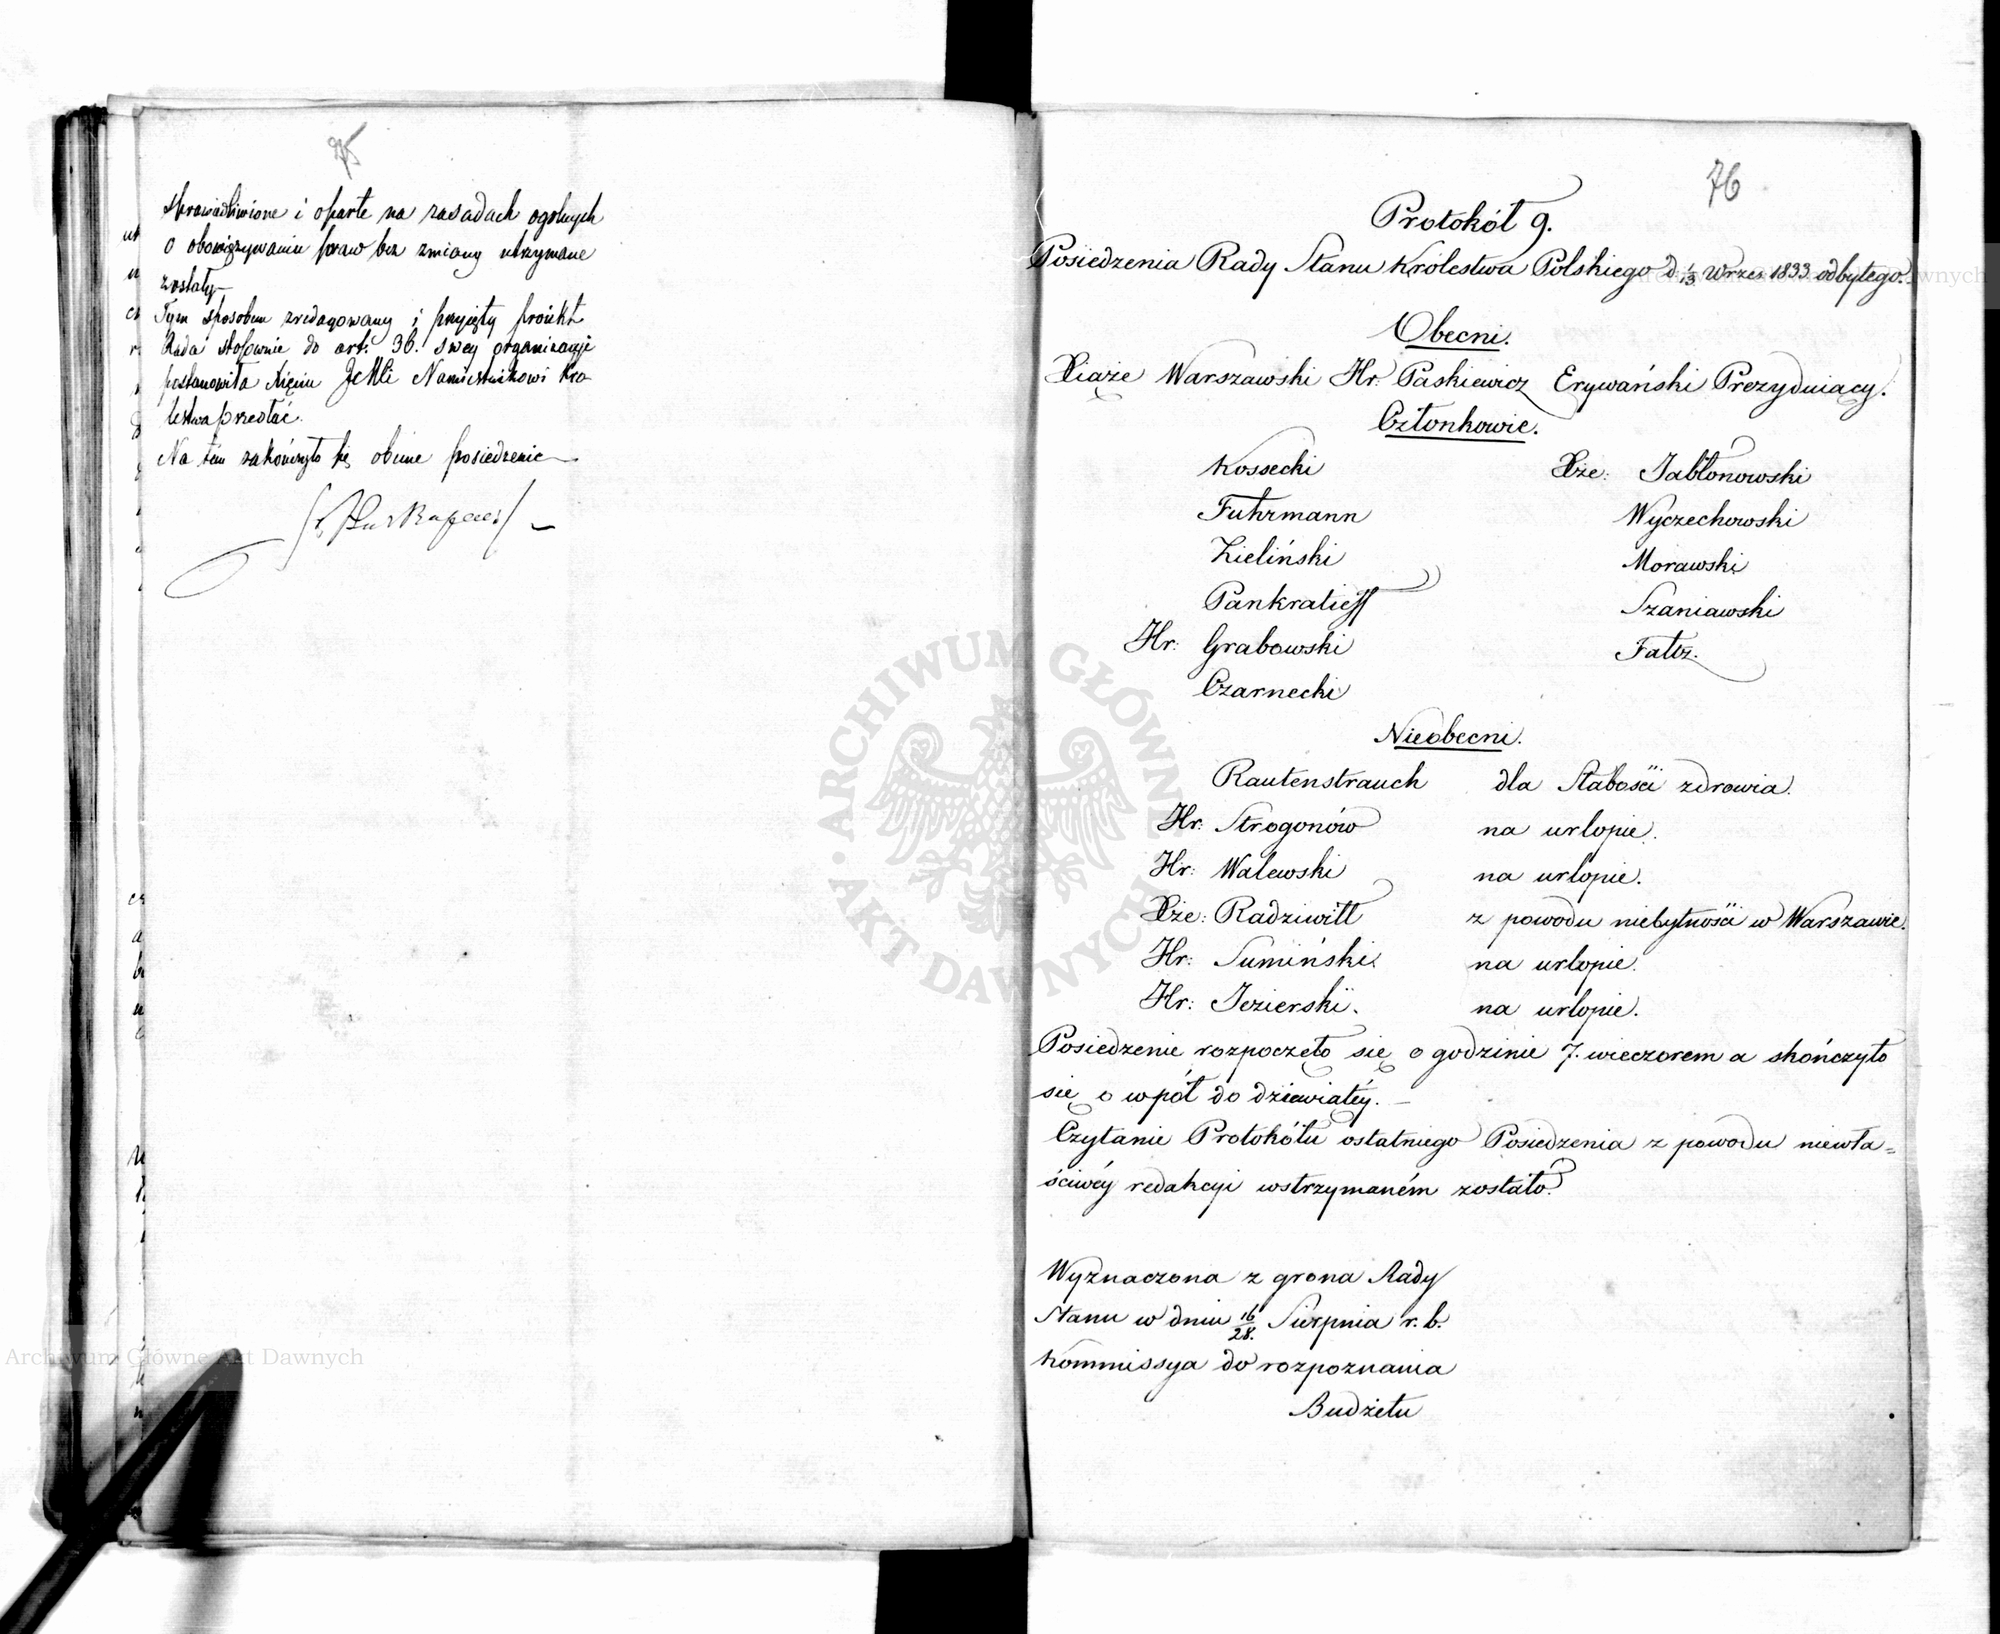 75
sprawiedliwione i oparte na zasadach ogólnych
o obowiązywaniu praw bez zmiany utrzymane
zostały
Tym sposobem zredagowany i przyjęty proiekt
Rada stosownie do art: 36. swey organizacyi
postanowiła Xięciu JeMci Namiestnikowi Kró
lestwa przesłać.
Na tém zakończyło się obecne posiedzenie
76
Protokół 9.
Posiedzenia Rady Stanu Królestwa Polskiego d. 1/13 Wrześ. 1833 odbytego.
Obecni.
Xiąże Warszawski Hr: Paskiewicz Erywański Prezyduiący.
Członkowie.
Kossecki Xże: Jabłonowski
Fuhrmann Wyczechowski
Zieliński Morawski
Pankratieff Szaniawski
Hr: Grabowski Faltz.
Czarnecki
Nieobecni.
Rautenstrauch dla słabości zdrowia.
Hr: Strogonów na urlopie.
Hr: Walewski na urlopie.
Xże: Radziwiłł z powodu niebytności w Warszawie.
Hr: Sumiński na urlopie.
Hr: Jezierski. na urlopie.
Posiedzenie rozpoczęło się o godzinie 7. wieczorem a skończyło
się o wpół do dziewiątéy. —
Czytanie Protokółu ostatniego Posiedzenia z powodu niewła=
ściwéy redakcyi wstrzymaném zostało.
Wyznaczona z grona Rady
Stanu w dniu 16/28. Sierpnia r. b.
Kommissya do rozpoznania
Budżetu
ARCHIWUM GŁÓWNE AKT DAWNYCH
Archiwum Główne Akt Dawnych